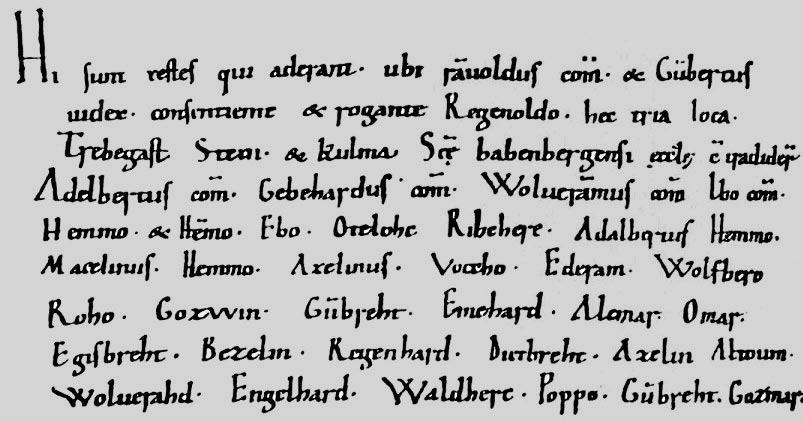 Hi sunt testes qui aderant. ubi rāuoldus com̄. & Gūbertus
iudex. consentiente & rogante Regenoldo. hec tria loca.
Trebegast Steni. & kulma Sc̄e babenbergensi eccle c̄ tradider̄
Adelbertus com̄. Gebehardus com̄. Woluerāmus com̄ Ibo com̄.
Hemmo. & Hēmo. Ebo. Otelohc Ribehere. Adalbertus Hemmo.
Macelinus. Hemmo. Axelinus. Voccho. Ederam. Wolfbero
Roho. Gozwin. Gūbreht. Einehard. Alemar. Omar.
Egisbreht. Bezelin. Regenhard. Dutbreht. Azelin Altuum.
Woluerahd. Engelhard. Waldhere. Poppo. Gūbreht. Gozmar.